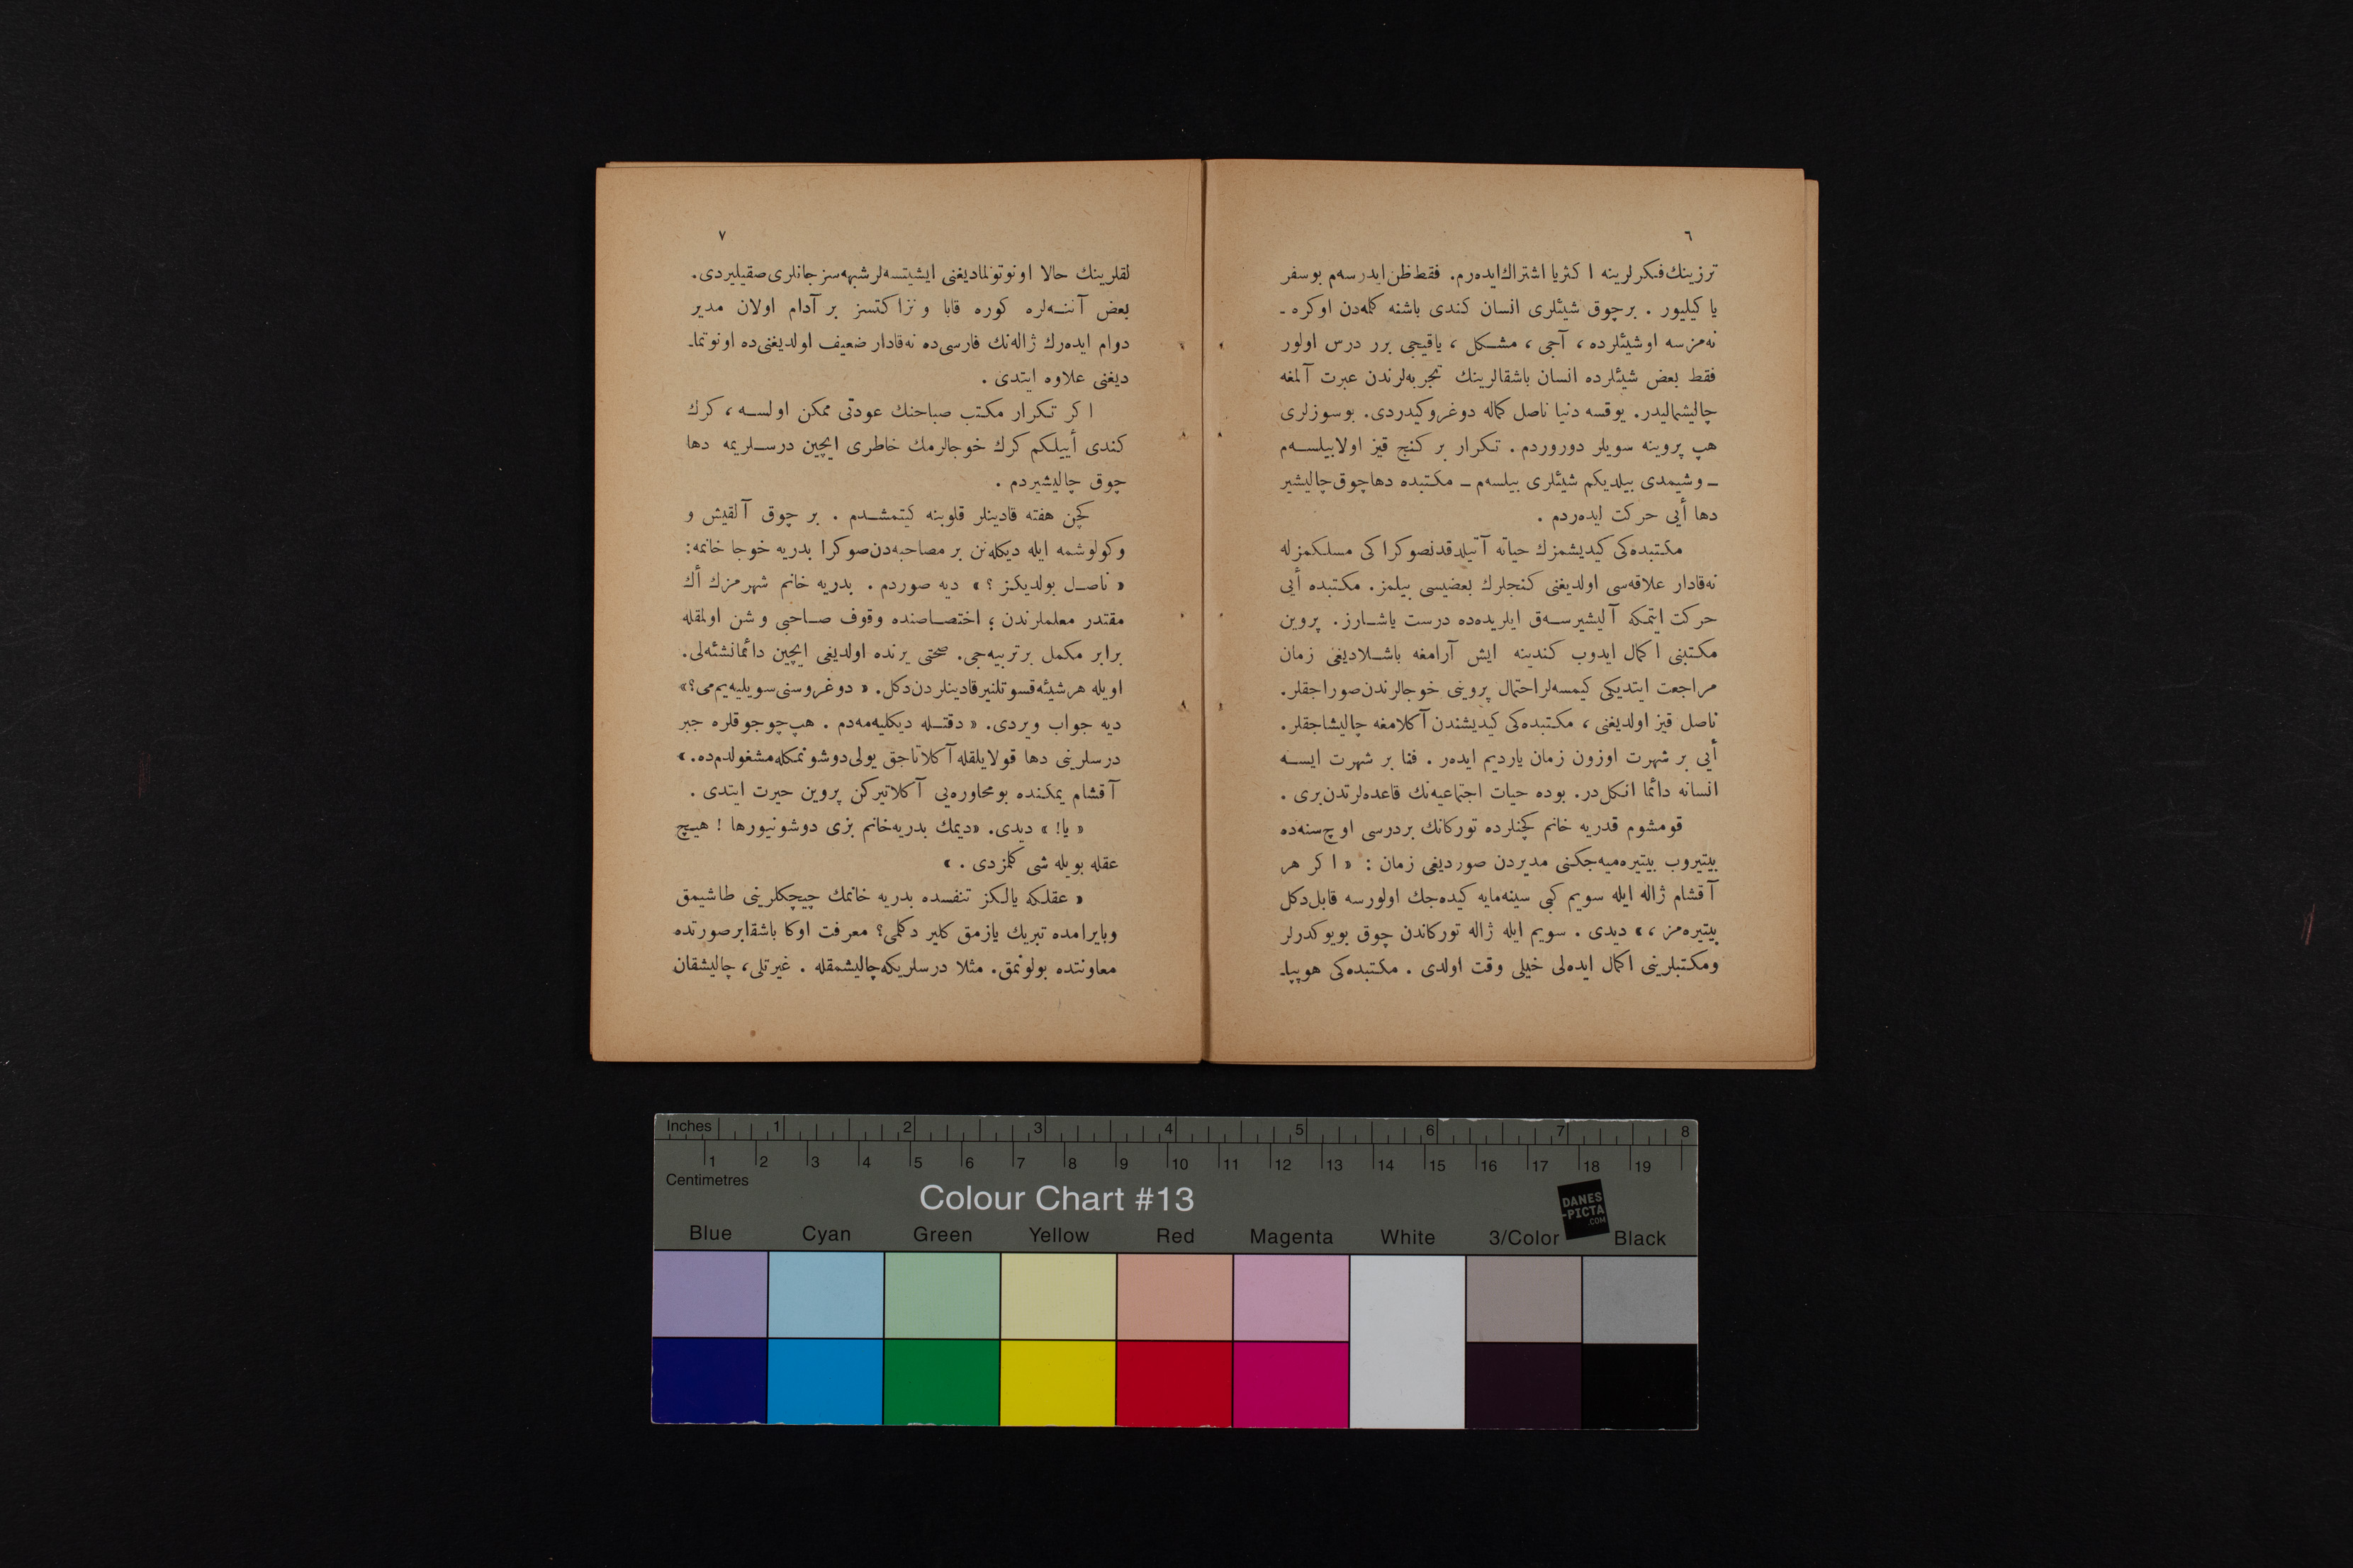 ٦
ترزينك فكرلرينه اكثريا اشتراك ايده‌رم. فقط ظن ايدرسه‌م بوسفر
ياكيليور . برچوق شيئلرى انسان كندى باشنه كلمه‌دن اوكره ـ
نه‌مزسه اوشيئلرده ، آجى ، مشكل ، ياقيجى برر درس اولور
فقط بعض شيئلرده انسان باشقالرينك تجربه‌لرندن عبرت آلمغه
چاليشماليدر. يوقسه دنيا ناصل كماله دوغروكيدردى. بوسوزلرى
هپ پروينه سويلر دوروردم . تكرار بر كنج قيز اولابيلسه‌م
ـ وشيمدى بيلديكم شيئلرى بيلسه‌م ـ مكتبده دهاچوق چاليشير
دها أيى حركت ايده‌ردم .
مكتبده‌كى كيديشمزك حياته آتيلدقدنصوكراكى مسلكمزله
نه‌قادار علاقه‌سى اولديغنى كنجلرك بعضيسى بيلمز. مكتبده أيى
حركت ايتمكه آليشيرسه‌ق ايلريده‌ده درست ياشارز. پروين
مكتبنى اكمال ايدوب كندينه ايش آرامغه باشلاديغى زمان
مراجعت ايتديكى كيمسه‌لر احتمال پروينى خوجالرندن صوراجقلر.
ناصل قيز اولديغنى ، مكتبده‌كى كيديشندن آكلامغه چاليشاجقلر.
أيى بر شهرت اوزون زمان يارديم ايده‌ر . فنا بر شهرت ايسه
انسانه دائما انكل‌در. بوده حيات اجتماعيه‌نك قاعده‌لرندن برى .
قومشوم قدريه خانم كچنلرده توركانك بردرسى اوچ سنه‌ده
بيتيروب بيتيره‌ميه‌جكنى مديردن صورديغى زمان : « اكر هر
آقشام ژاله ايله سويم كبى سينه‌مايه كيده‌جك اولورسه قابل دكل
بيتيره‌مز ، » ديدى . سويم ايله ژاله توركاندن چوق بويوكدرلر
ومكتبلرينى اكمال ايده‌لى خيلى وقت اولدى . مكتبده‌كى هوپپاـ
٧
لقلرينك حالا اونوتولماديغنى ايشيتسه‌لر شبهه‌سز جانلرى صقيليردى.
بعض آننه‌لره كوره قابا و نزاكتسز بر آدام اولان مدير
دوام ايده‌رك ژاله‌نك فارسى‌ده نه‌قادار ضعيف اولديغنى‌ده اونوتماـ
ديغنى علاوه ايتدى .
اكر تكرار مكتب صباحنك عودتى ممكن اولسه ، كرك
كندى أييلكم كرك خوجالرمك خاطرى ايچين درسلريمه دها
چوق چاليشيردم .
كچن هفته قادينلر قلوبنه كيتمشدم . بر چوق آلقيش و
وكولوشمه ايله ديكله‌نن بر مصاحبه‌دن صوكرا بدريه خوجا خانمه:
« ناصل بولديكز ؟ » ديه صوردم . بدريه خانم شهرمزك أك
مقتدر معلملرندن ؛ اختصاصنده وقوف صاحبى وشن اولمقله
برابر مكمل برتربيه‌جى. صحتى يرنده اولديغى ايچين دائمانشئه‌لى.
اويله هرشيئه قسوتلنير قادينلردن دكل. « دوغروسنى سويليه‌يم‌مى؟»
ديه جواب ويردى. « دقتله ديكليه‌مه‌دم . هپ چوجوقلره جبر
درسلرينى دها قولايلقله آكلاتاجق يولى دوشونمكله مشغولدم‌ده. »
آقشام يمكنده بومحاوره‌يى آكلاتيركن پروين حيرت ايتدى .
« يا! » ديدى. «ديمك بدريه خانم بزى دوشونيورها ! هيچ
عقله بويله شى كلمزدى . »
« عقلكه يالكز تنفسده بدريه خانمك چيچكلرينى طاشيمق
وبايرامده تبريك يازمق كلير دكلمى؟ معرفت اوكا باشقا برصورتده
معاونتده بولونمق. مثلا درسلريكه چاليشمقله . غيرتلى، چاليشقان
Inches 1 2 3 4 5 6 7 8
1 2 3 4 5 6 7 8 9 10 11 12 13 14 15 16 17 18 19
Centimetres
Colour Chart #13
DANES
-PICTA
.COM
Blue Cyan Green Yellow Red Magenta White 3/Color Black